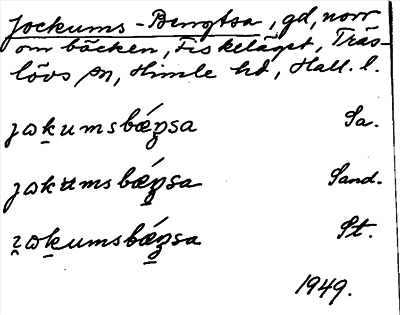 Jockums-Bengtsa, gd, norr
om bäcken, Fiskeläget, Träs-
lövs sn, Himle hd, Hall. l.
jωkumsbǽŋsa Sa.
jωkumsbǽŋsa Sand.
jωkumsbǽŋsa St.
1949.